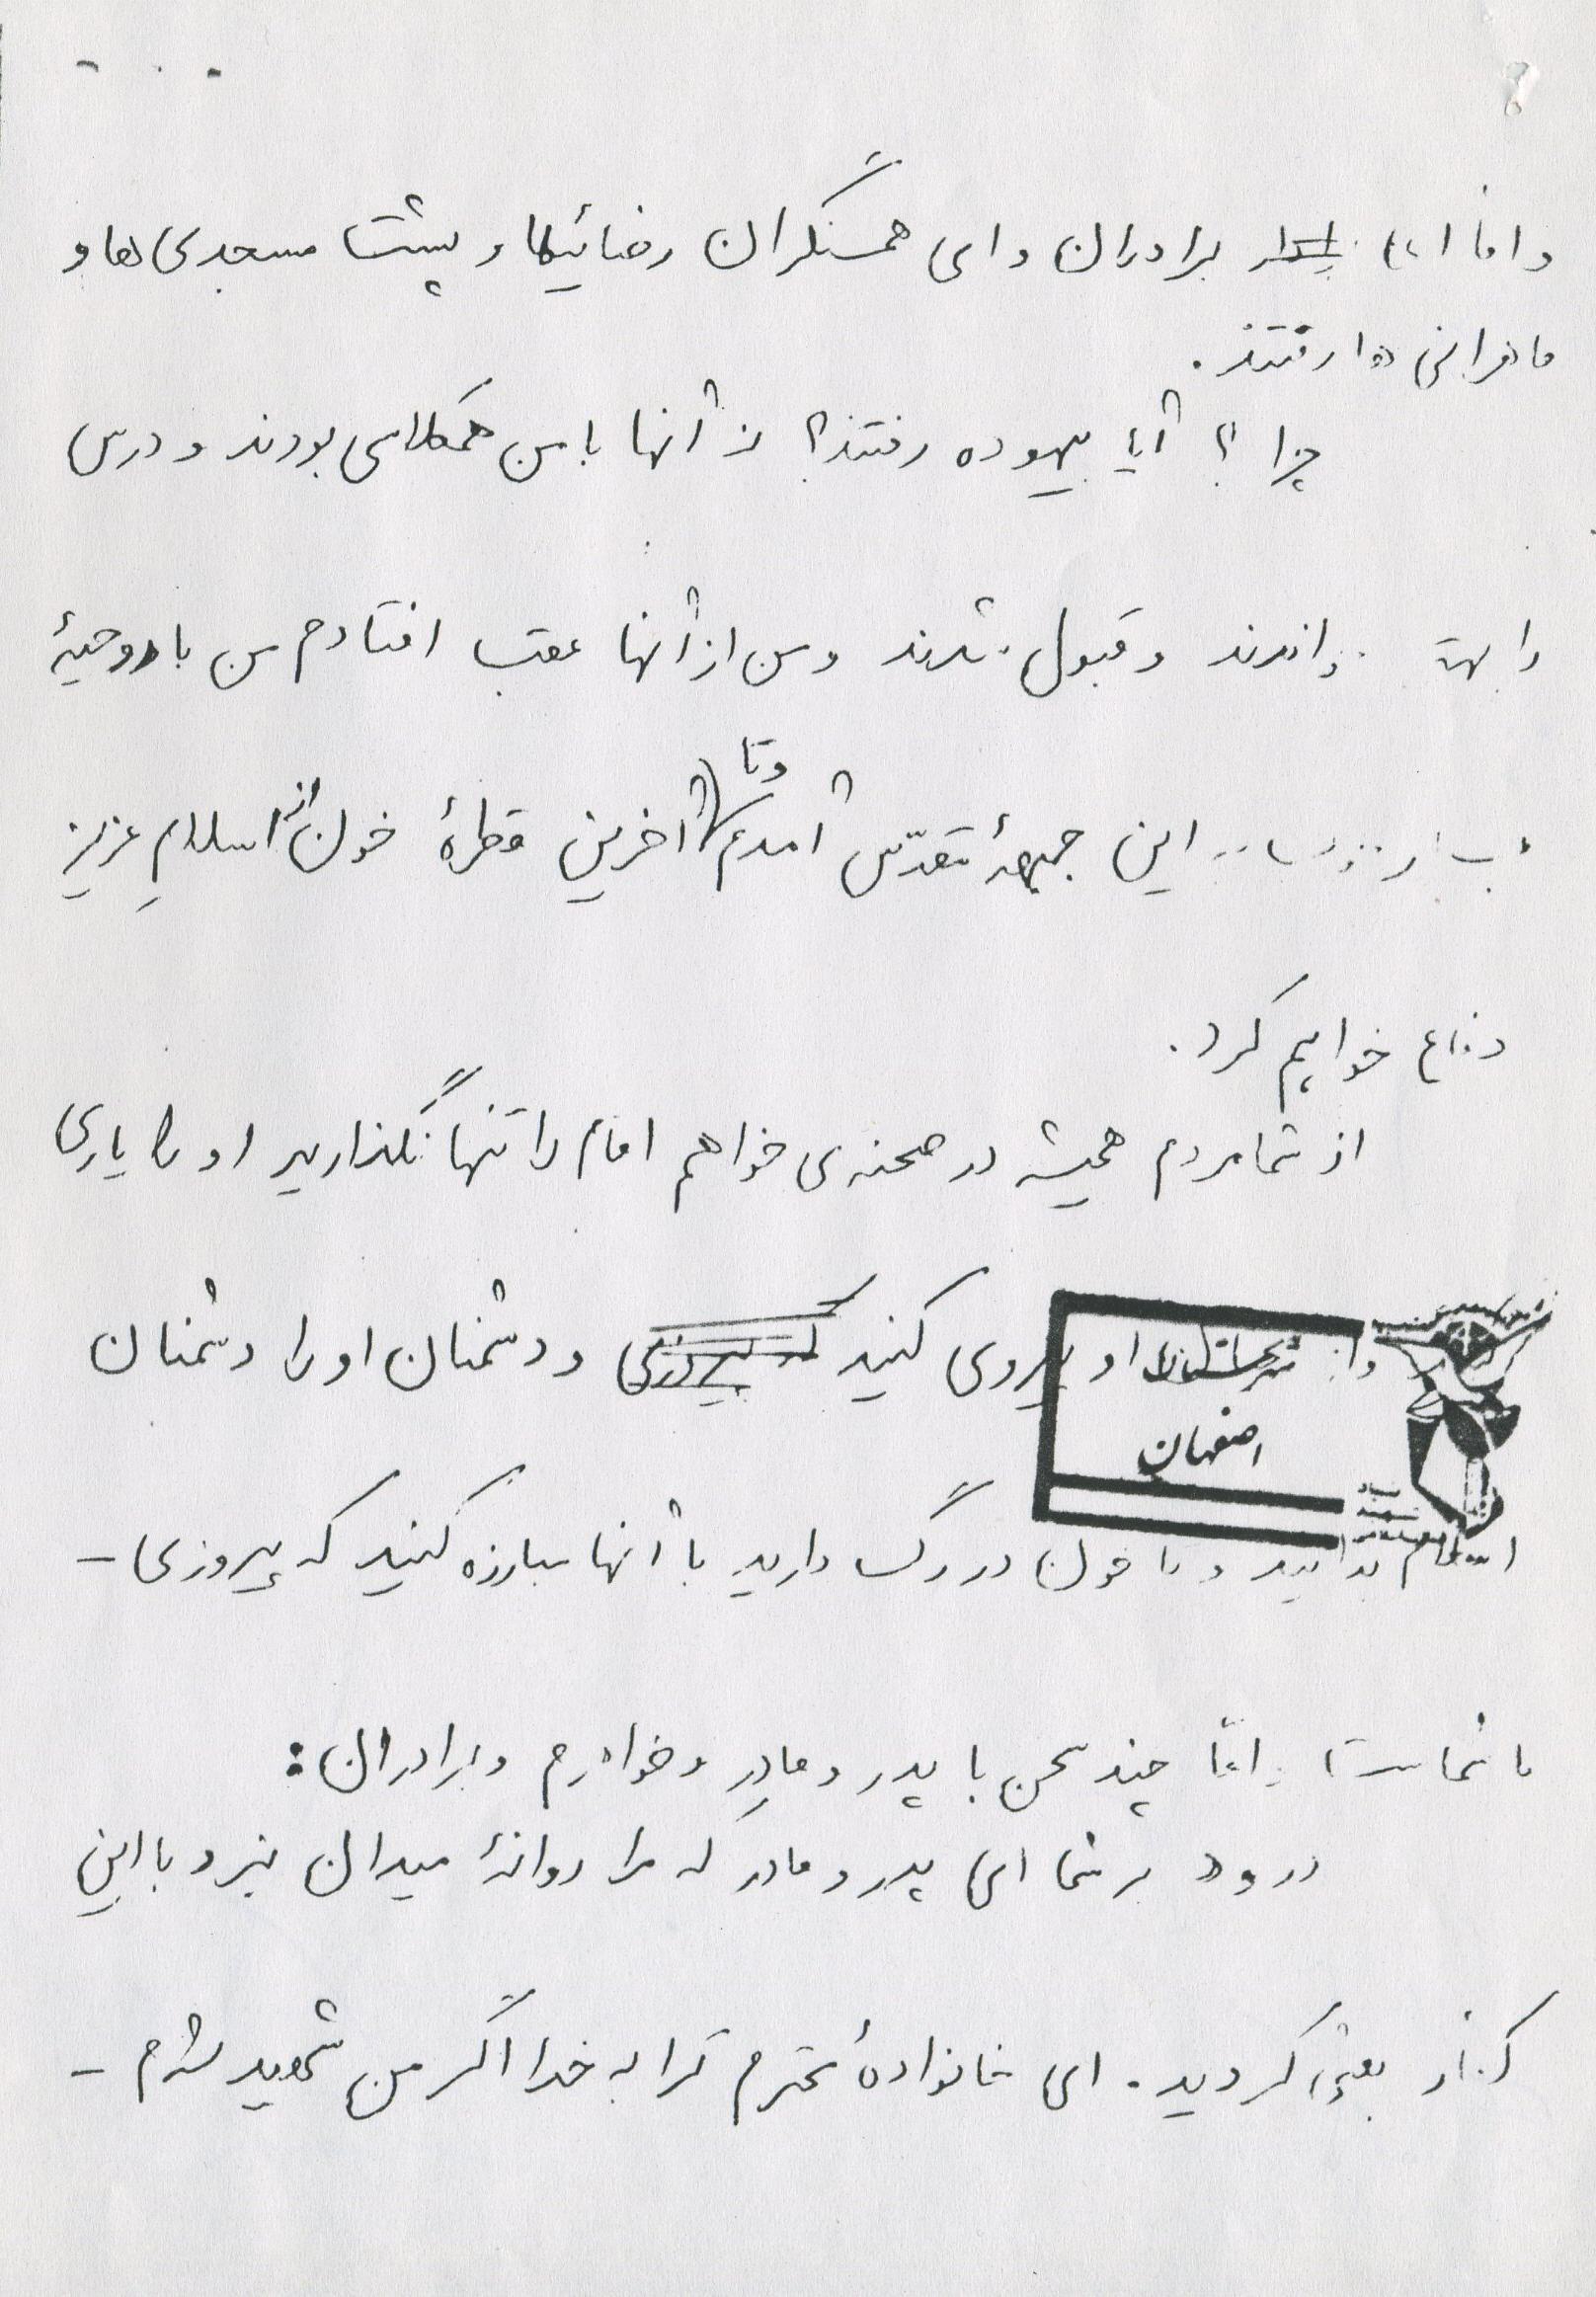 و اما ای برادران و ای همسنگران رضائیها و پشت مسجدی ها و
ماهرانی ها رفتند.
چرا؟ آیا بیهوده رفتند؟ نه آنها با من همکلاسی بودند و درس
را خواندند و قبول شدند و من از آنها عقب افتادم من با روحیهٔ
این جبههٔ مقدّس آمدم و تا آخرین قطرهٔ خون از اسلامِ عزیز
دفاع خواهیم کرد.
از شما مردم همیشه در صحنه می خواهم امام را تنها نگذارید او را یاری
او پیروی کنید و دشمنان او را دشمنان
اصفهان
اسلام بدانید و تا خون در رگ دارید با آنها مبارزه کنید که پیروزی -
با شماست امّا چند سخن با پدر و مادر و خواهرم و برادران:
درود بر شما ای پدر و مادر که مرا روانهٔ میدان نبرد با این
کفار بعثی کردید. ای خانوادهٔ محترم ترا به خدا اگر من شهید شدم -